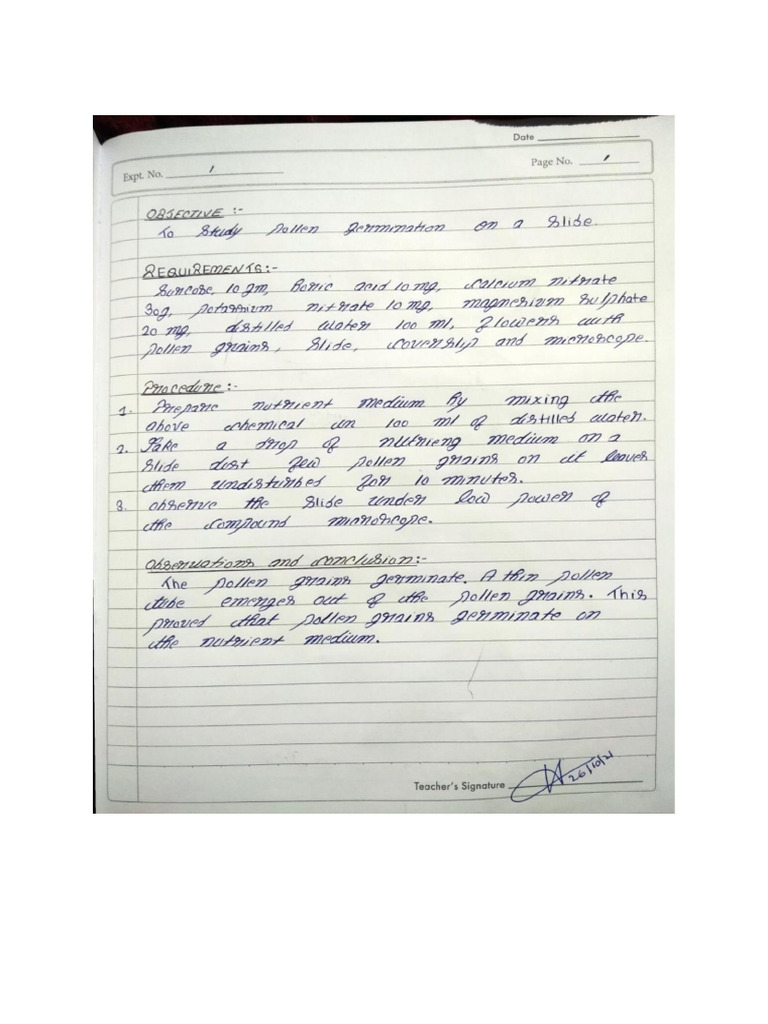 Date
Expt. No. 1
Page No. 1
OBJECTIVE :-
To study pollen germination on a slide.
REQUIREMENTS:-
Surcose 10 gm, Boric acid 10 mg, calcium nitrate
30g, potassium nitrate 10 mg, magnesium sulphate
20 mg, distilled water 100 ml, flowers with
pollen grains, slide, coverslip and microscope.
Procedure :-
1. Prepare nutrient medium by mixing the
above chemical in 100 ml of distilled water.
2. Take a drop of nutrieng medium on a
slide dust few pollen grains on it leaver
them undisturbed for 10 minutes.
3. observe the slide under low power of
the compound microscope.
Observations and conclusion:-
The pollen grains germinate. A thin pollen
tube emerges out of the pollen grains. This
proved that pollen grains germinate on
the nutrient medium.
Teacher's Signature
26/10/21